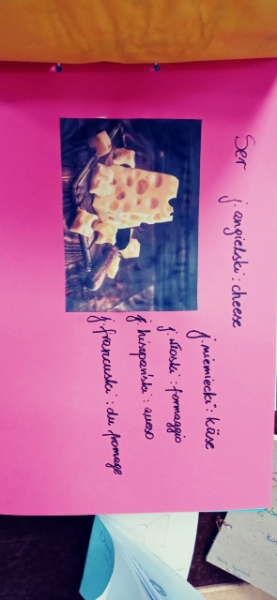 Ser
j. angielski: cheese
j. niemiecki: käse
j. włoski: formaggio
j. hiszpański: queso
j. francuski: du fromage